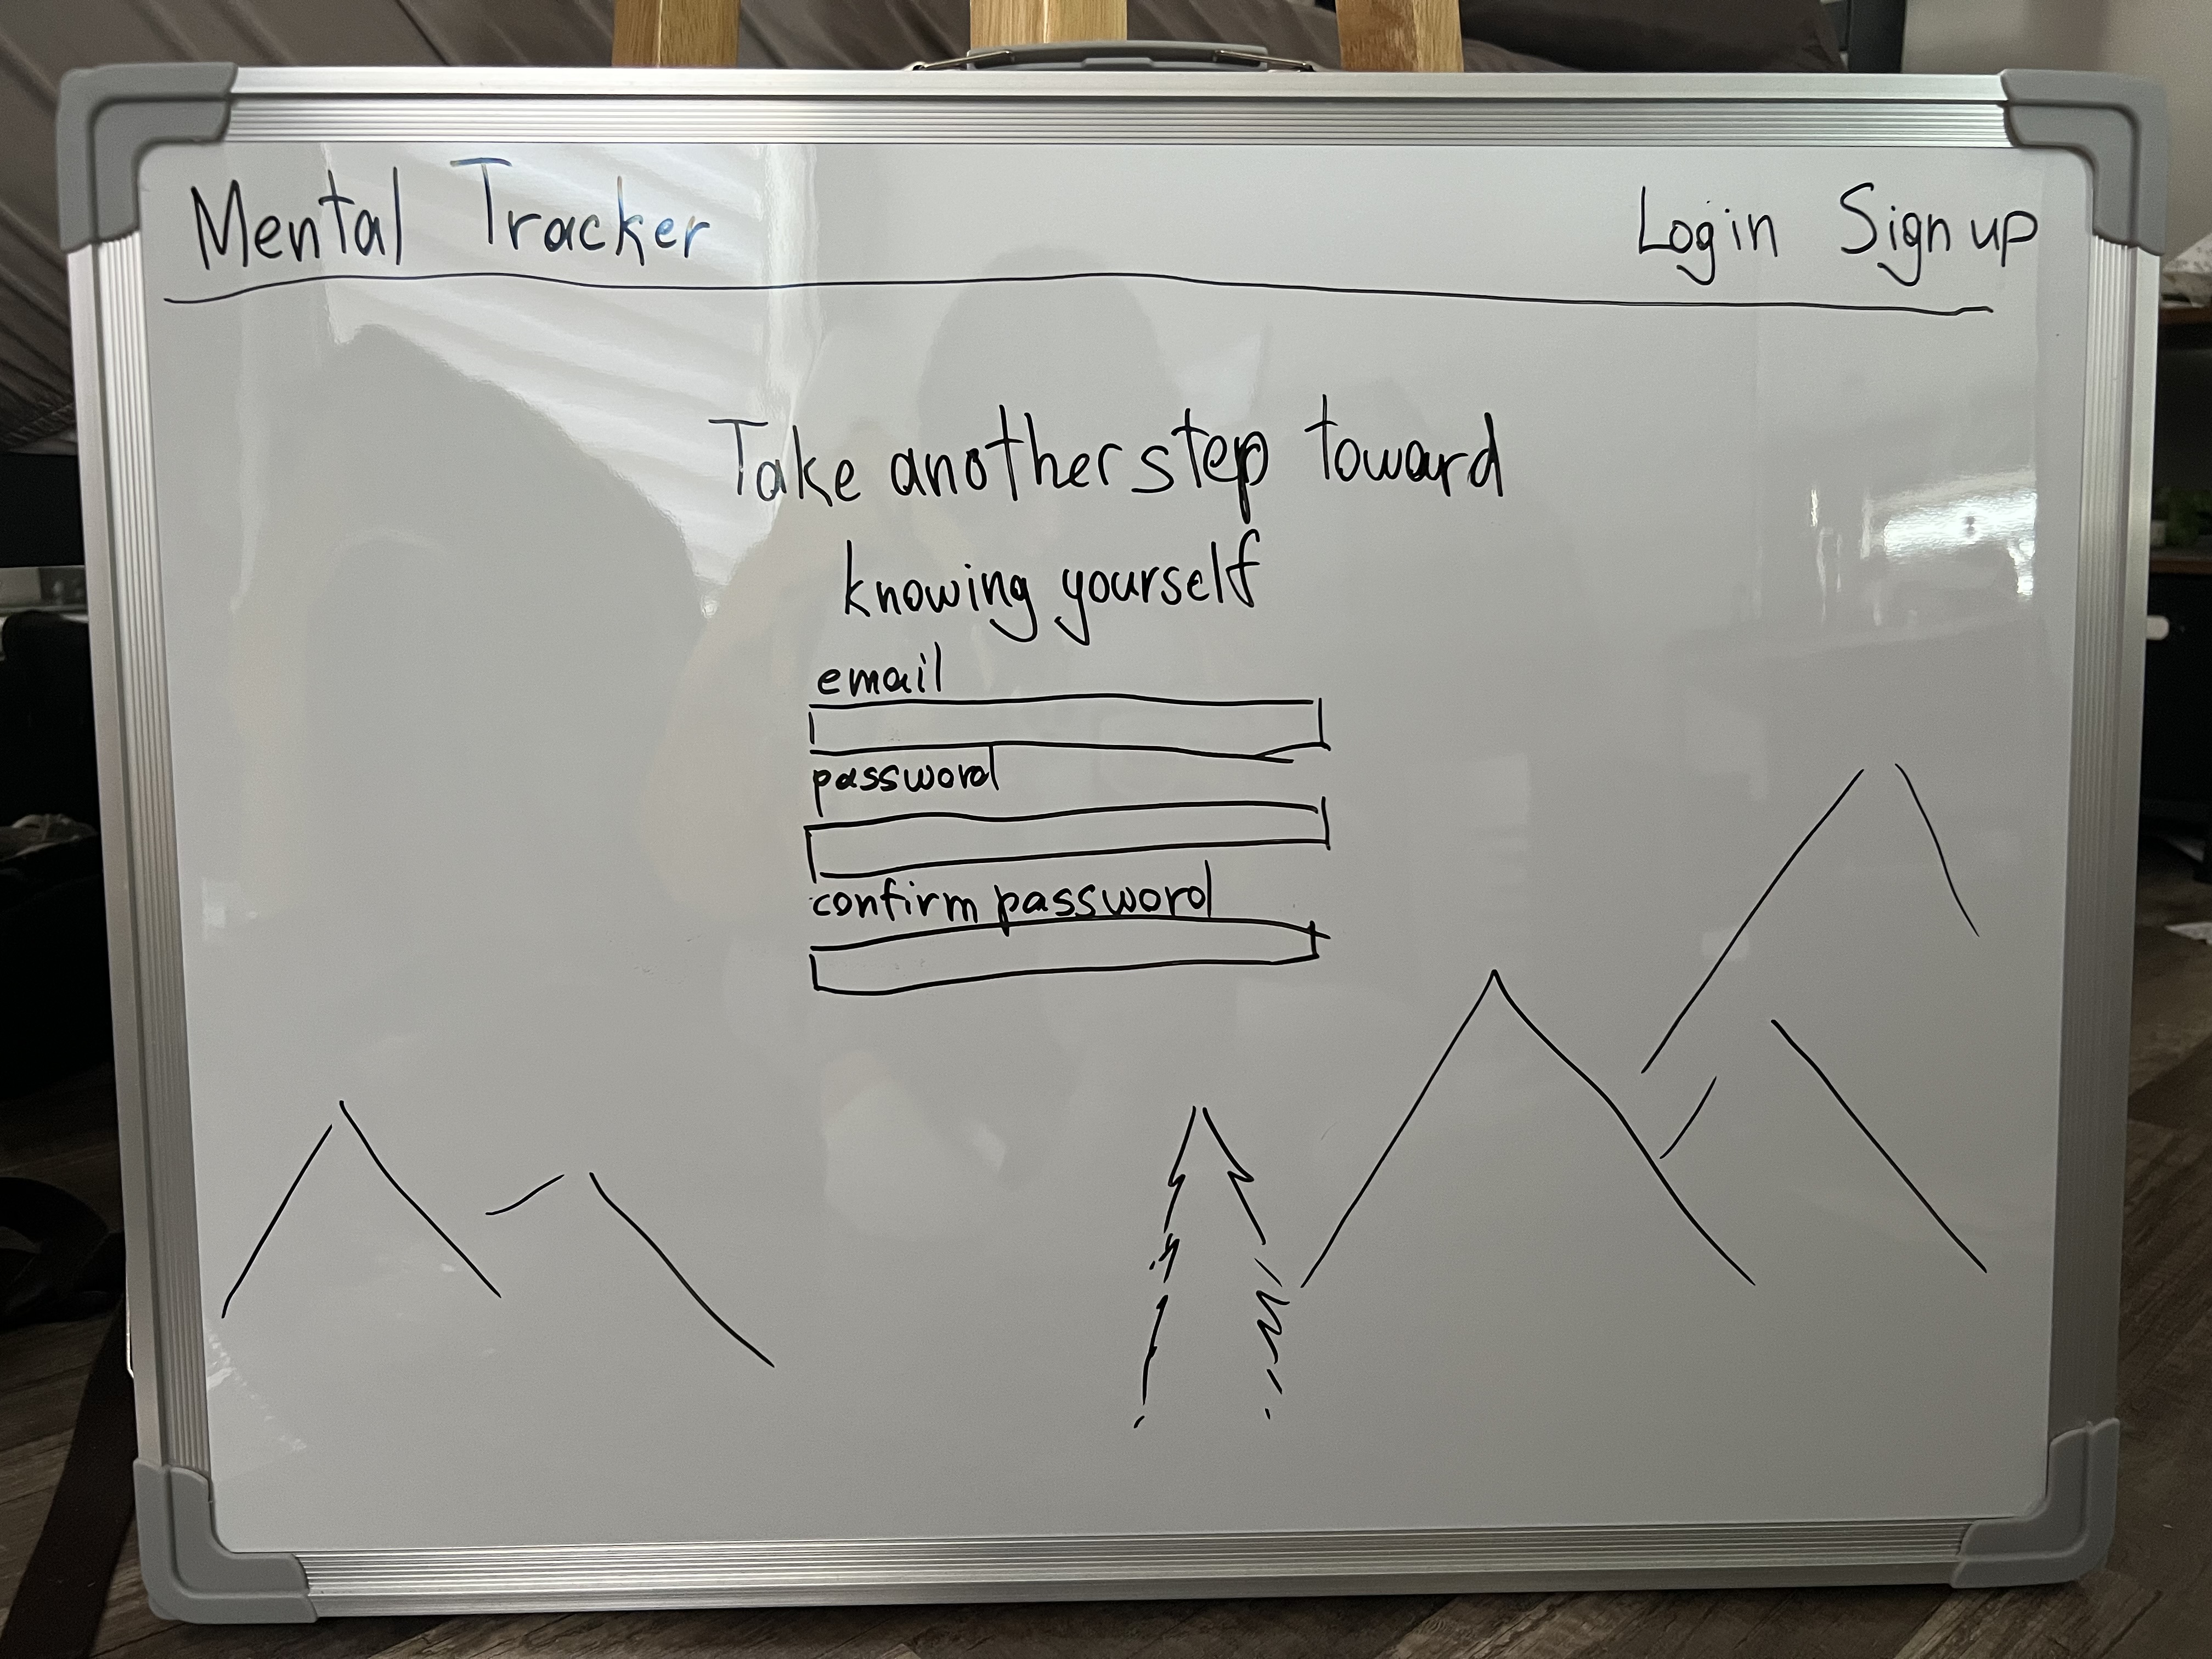 Mental Tracker Login Sign up
Take another step toward
knowing yourself
email
password
confirm password